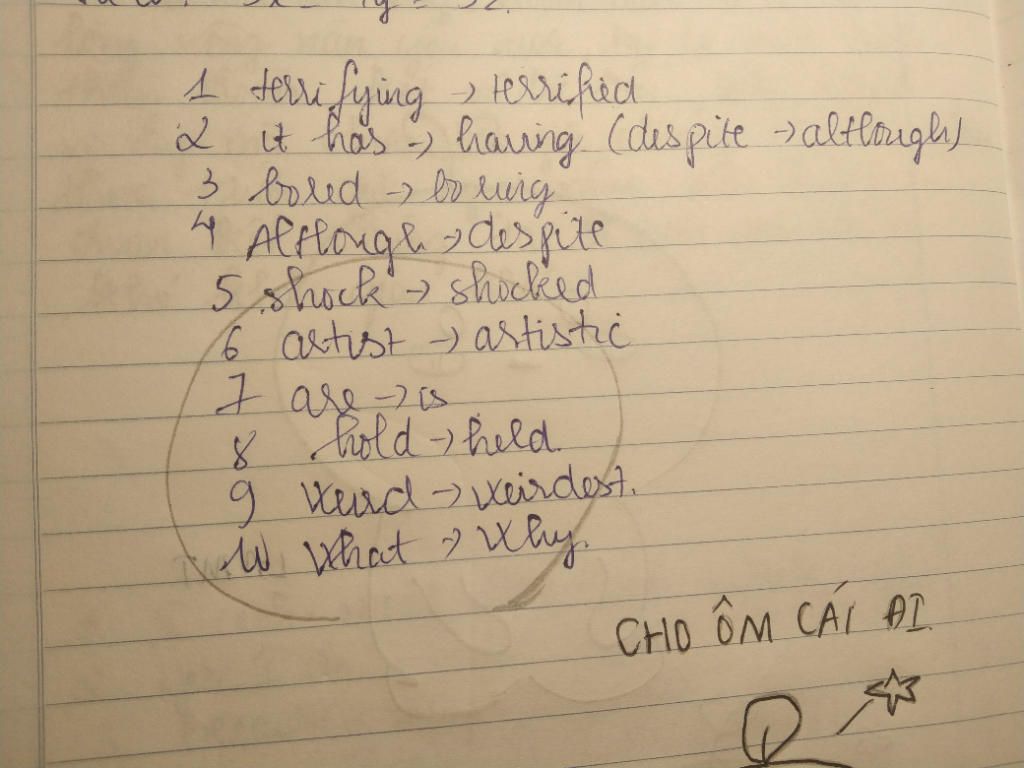 1 terrifying → terrified
2 it has → having (despite → although)
3 bored → boring
4 Although → despite
5 shock → shocked
6 artist → artistic
7 are → is
8 hold → held.
9 Weird → Weirdest.
10 What → Why.
CHO ÔM CÁI ĐI